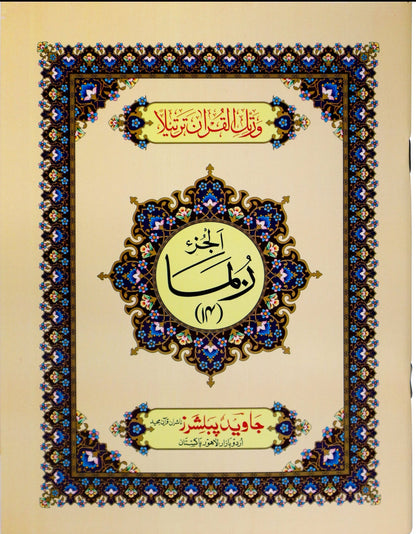 ورتل القرآن ترتیلا
الجزء
ربما
(۱۴)
جاوید پبلشرز ناشران قرآن مجید
اردو بازار لاہور پاکستان